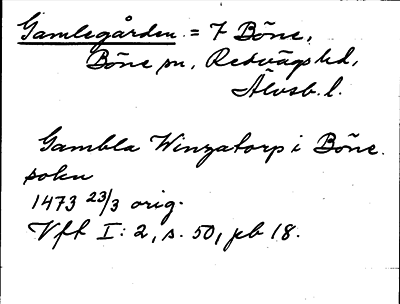 Gamlegården = 7 Böne,
Böne sn, Redvägs hd,
Älvsb. l.
Gambla Winzatorp i Böne
sokn
1473 23/3 orig.
Vft I: 2, s. 50, pb 18.